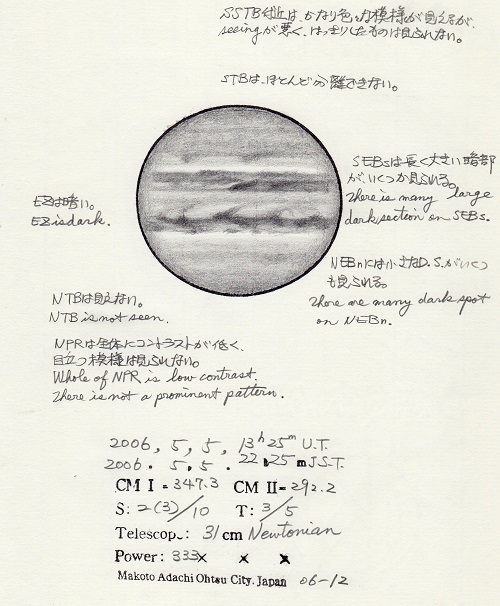 SSTB付近は、かなり色々な模様が見えるが、
seeingが悪く、はっきりしたものは見られない。
STBは、ほとんど分離できない。
SEBsは長く大きい暗部
が、いくつか見られる。
There is many large
dark section on SEBs.
EZは暗い。
EZ is dark.
NEBnには小さなD.S.がいくつ
も見られる。
There are many dark spot
on NEBn.
NTBは見えない。
NTB is not seen.
NPRは全体にコントラストが低く、
目立つ模様は見られない。
Whole of NPR is low contrast.
There is not a prominent pattern.
2006, 5, 5, 13h 25m U.T.
2006. 5. 5. 22h 25m J.S.T.
CM I = 347.3 CM II = 292.2
S: 2(3)/10 T: 3/5
Telescop.: 31 cm Newtonian
Power: 333x x x
Makoto Adachi Ohtsu City. Japan 06-12